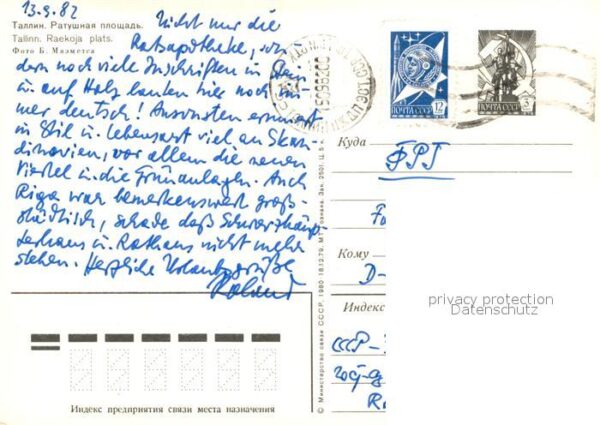 13.9.82
Таллин. Ратушная площадь.
Tallinn. Raekoja plats.
Фото Б. Мяэметса
Nicht nur die
Ratsapotheke, son-
dern noch viele Inschriften in Stein
u. auf Holz lauten hier noch im-
mer deutsch! Ansonsten erinnert
in Stil u. Lebensart viel an Skan-
dinavien, vor allem die neuen
Viertel u. die Grünanlagen. Auch
Riga war bemerkenswert groß-
städtisch, schade daß Schwarzhäup-
terhaus u. Rathaus nicht mehr
stehen. Herzliche Urlaubsgrüße
Roland
ПОЧТА СССР 12
ПОЧТА СССР 3
Куда
ФРГ
Кому
D-
Индекс
СССР-
© Министерство связи СССР, 1980
Индекс предприятия связи места назначения
privacy protection
Datenschutz